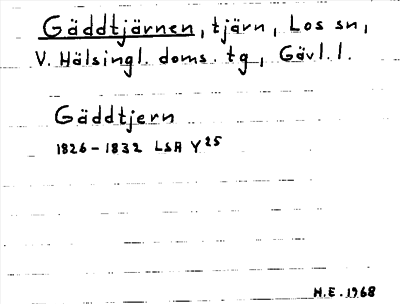 Gäddtjärnen, tjärn, Los sn,
V. Hälsingl. doms. tg, Gävl. l.
Gäddtjern
1826-1832 LSA Y25
H.E. 1968